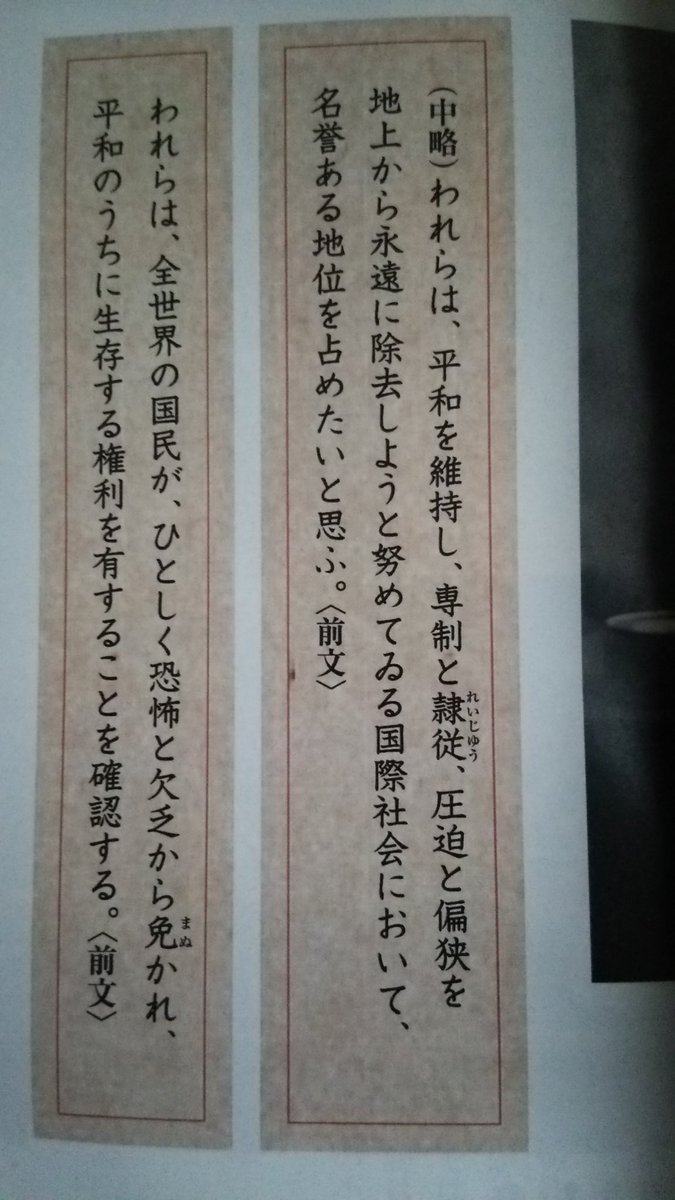 (中略)われらは、平和を維持し、専制と隷従、圧迫と偏狭を
れいじゅう
地上から永遠に除去しようと努めてゐる国際社会において、
名誉ある地位を占めたいと思ふ。〈前文〉
われらは、全世界の国民が、ひとしく恐怖と欠乏から免かれ、
まぬ
平和のうちに生存する権利を有することを確認する。〈前文〉